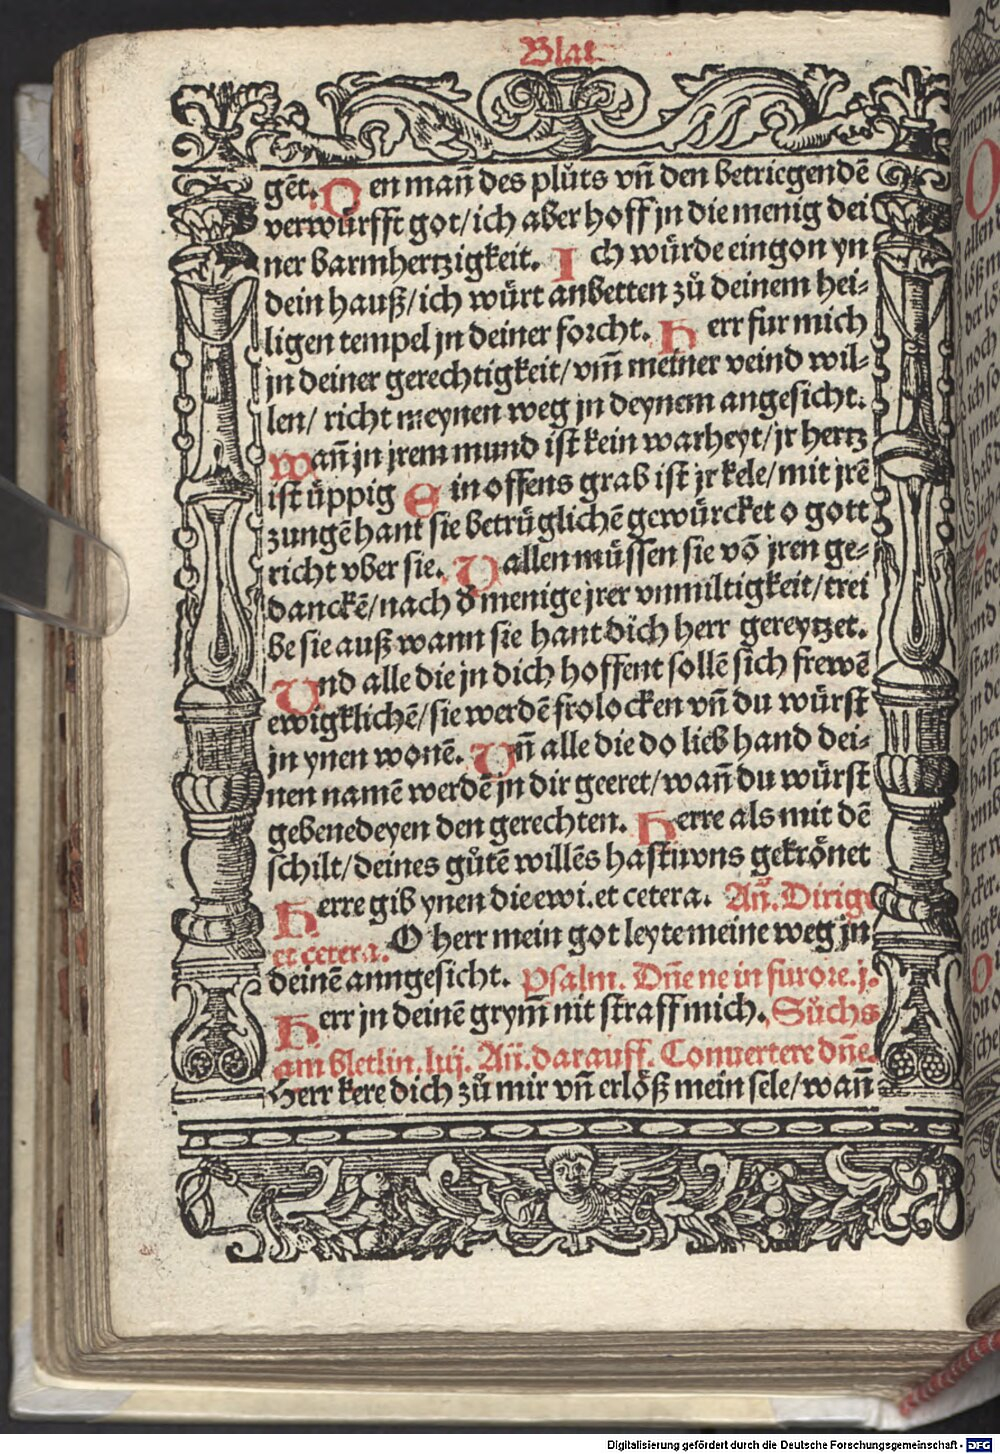 Blat
gēt. Den man̄ des plůts vn̄ den betriegendē
verwürfft got/ich aber hoff jn die menig dei
ner barmhertzigkeit. Ich würde eingon yn
dein hauß/ich würt anbetten zů deinem hei-
ligen tempel jn deiner forcht. Herr fur mich
jn deiner gerechtigkeit/vm̄ meiner veind wil-
len/ richt meynen weg jn deynem angesicht.
wan̄ jn jrem mund ist kein warheyt/jr hertz
ist üppig Ein offens grab ist jr kele/mit jrē
zungē hant sie betrüglichē gewürcket o gott
richt vber sie. Vallen müssen sie vō jren ge-
danckē/nach d̄ menige jrer vnmiltigkeit/trei
be sie auß wann sie hant dich herr gereytzet.
Vnd alle die jn dich hoffent sollē sich frewē
ewigklichē/sie werdē frolocken vn̄ du würst
jn ynen wonē. Vn̄ alle die do lieb hand dei-
nen namē werdē jn dir geeret/wan̄ du würst
gebenedeyen den gerechten. Herre als mit dē
schilt/deines gůtē willēs hastu vns gekrönet
Herre gib ynen die ewi. et cetera. An̄. Dirige
et cetera. O herr mein got leyte meine weg jn
deinē anngesicht. Psalm. Dn̄e ne in furore. j.
Herr jn deinē grym̄ nit straff mich. Sůchs
am bletlin. luj. An̄. darauff. Conuertere dn̄e.
Herr kere dich zů mir vn̄ erlöß mein sele/wan̄
Digitalisierung gefördert durch die Deutsche Forschungsgemeinschaft - DFG